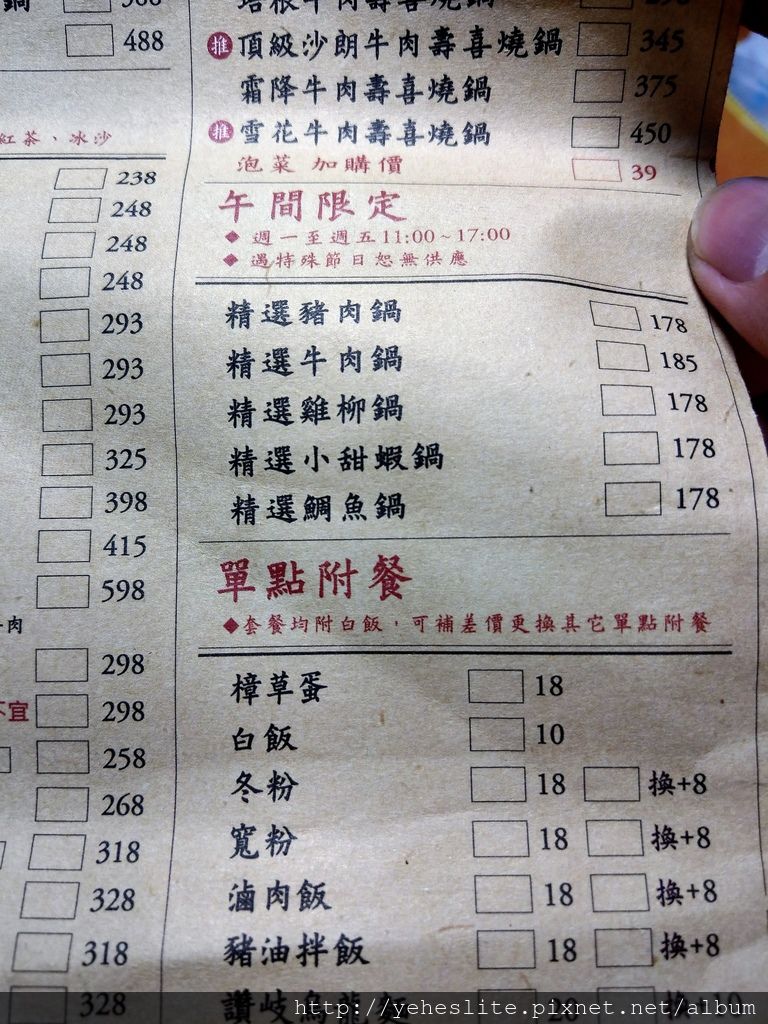 鍋
488
紅茶、冰沙
238
248
248
248
293
293
293
325
398
415
598
牛肉
298
不宜 298
258
268
318
328
318
328
推 頂級沙朗牛肉壽喜燒鍋 345
霜降牛肉壽喜燒鍋 375
推 雪花牛肉壽喜燒鍋 450
泡菜 加購價 39
午間限定
◆ 週一至週五11:00~17:00
◆ 遇特殊節日恕無供應
精選豬肉鍋 178
精選牛肉鍋 185
精選雞柳鍋 178
精選小甜蝦鍋 178
精選鯛魚鍋 178
單點附餐
◆套餐均附白飯,可補差價更換其它單點附餐
樟草蛋 18
白飯 10
冬粉 18 換+8
寬粉 18 換+8
滷肉飯 18 換+8
豬油拌飯 18 換+8
讚岐烏龍麵 20 換+10
http://yeheslite.pixnet.net/album